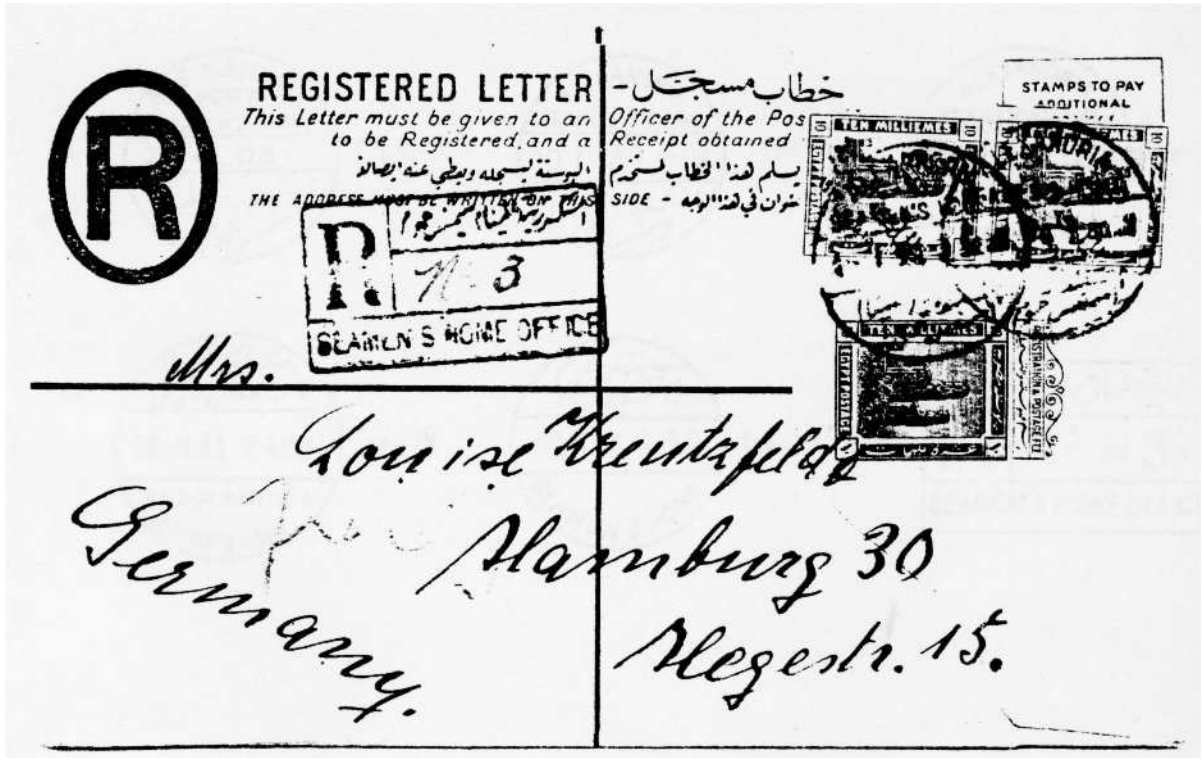 R
REGISTERED LETTER - خطاب مسجل
This Letter must be given to an Officer of the Pos
to be Registered, and a Receipt obtained
يسلم هذا الخطاب لمستخدم البوستة ليسجله ويعطي عنه إيصالاً
THE ADDRESS MUST BE WRITTEN ON THIS SIDE -
STAMPS TO PAY
ADDITIONAL
R
3
SEAMEN'S HOME OFFICE
TEN MILLIEMES
EGYPT POSTAGE
TEN MILLIEMES
TEN MILLIEMES
EGYPT POSTAGE
Mrs.
Louise Kreutzfeldt
Hamburg 30
Hegestr. 15.
Germany.